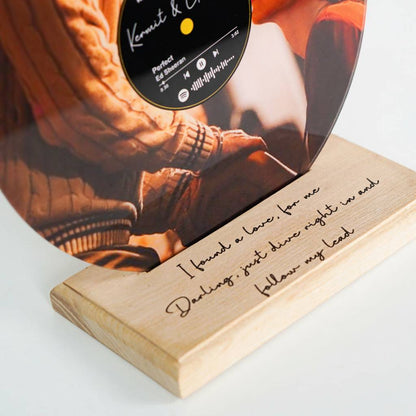 Kermit &
Perfect
Ed Sheeran
I found a love, for me
Darling, just dive right in and
follow my lead